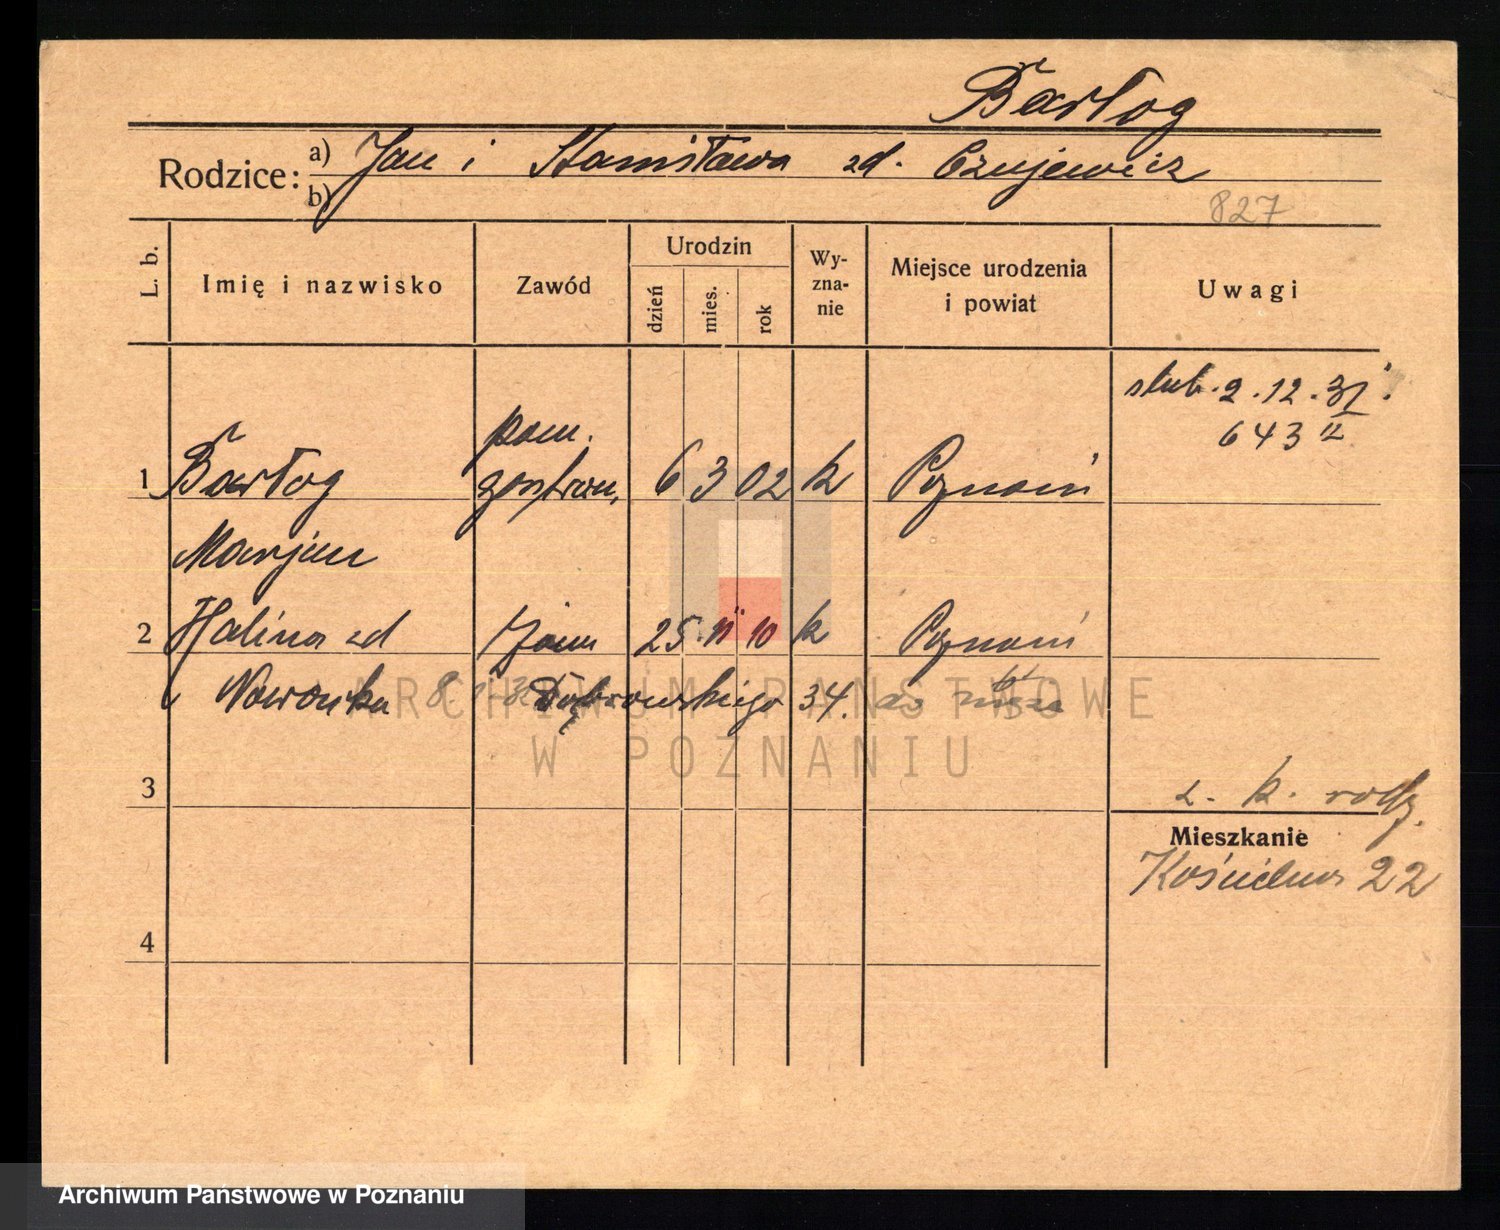 Bartog
Rodzice: a) Jan i Stanisława zd. Czujewicz
b)
827
L. b. Imię i nazwisko Zawód Urodzin dzień mies. rok Wyznanie Miejsce urodzenia i powiat Uwagi
ślub. 2.12.31.
643 II
pom.
1 Bartog 6 3 02 k Poznań
Marjan
2 Halina zd żona 25 11 10 k Poznań
Nowonka Dąbrowskiego 34.
ARCHIWUM PAŃSTWOWE
W POZNANIU
3
z. k. rodz.
Mieszkanie
Kościelna 22
4
Archiwum Państwowe w Poznaniu